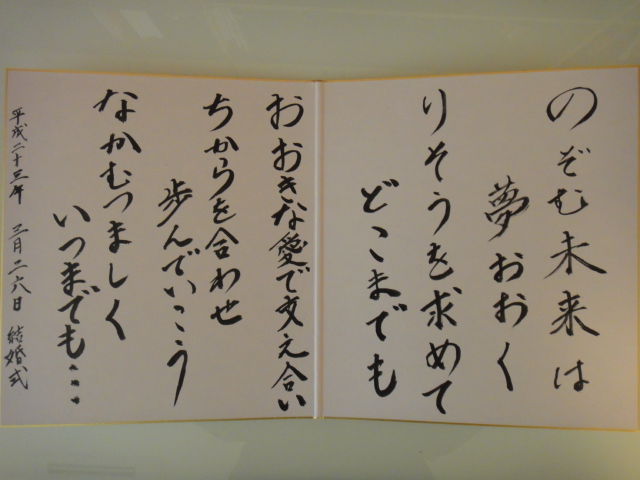 のぞむ未来は
夢おおく
りそうを求めて
どこまでも
おおきな愛で支え合い
ちからを合わせ
歩んでいこう
なかむつましく
いつまでも…
平成二十三年 三月二六日 結婚式